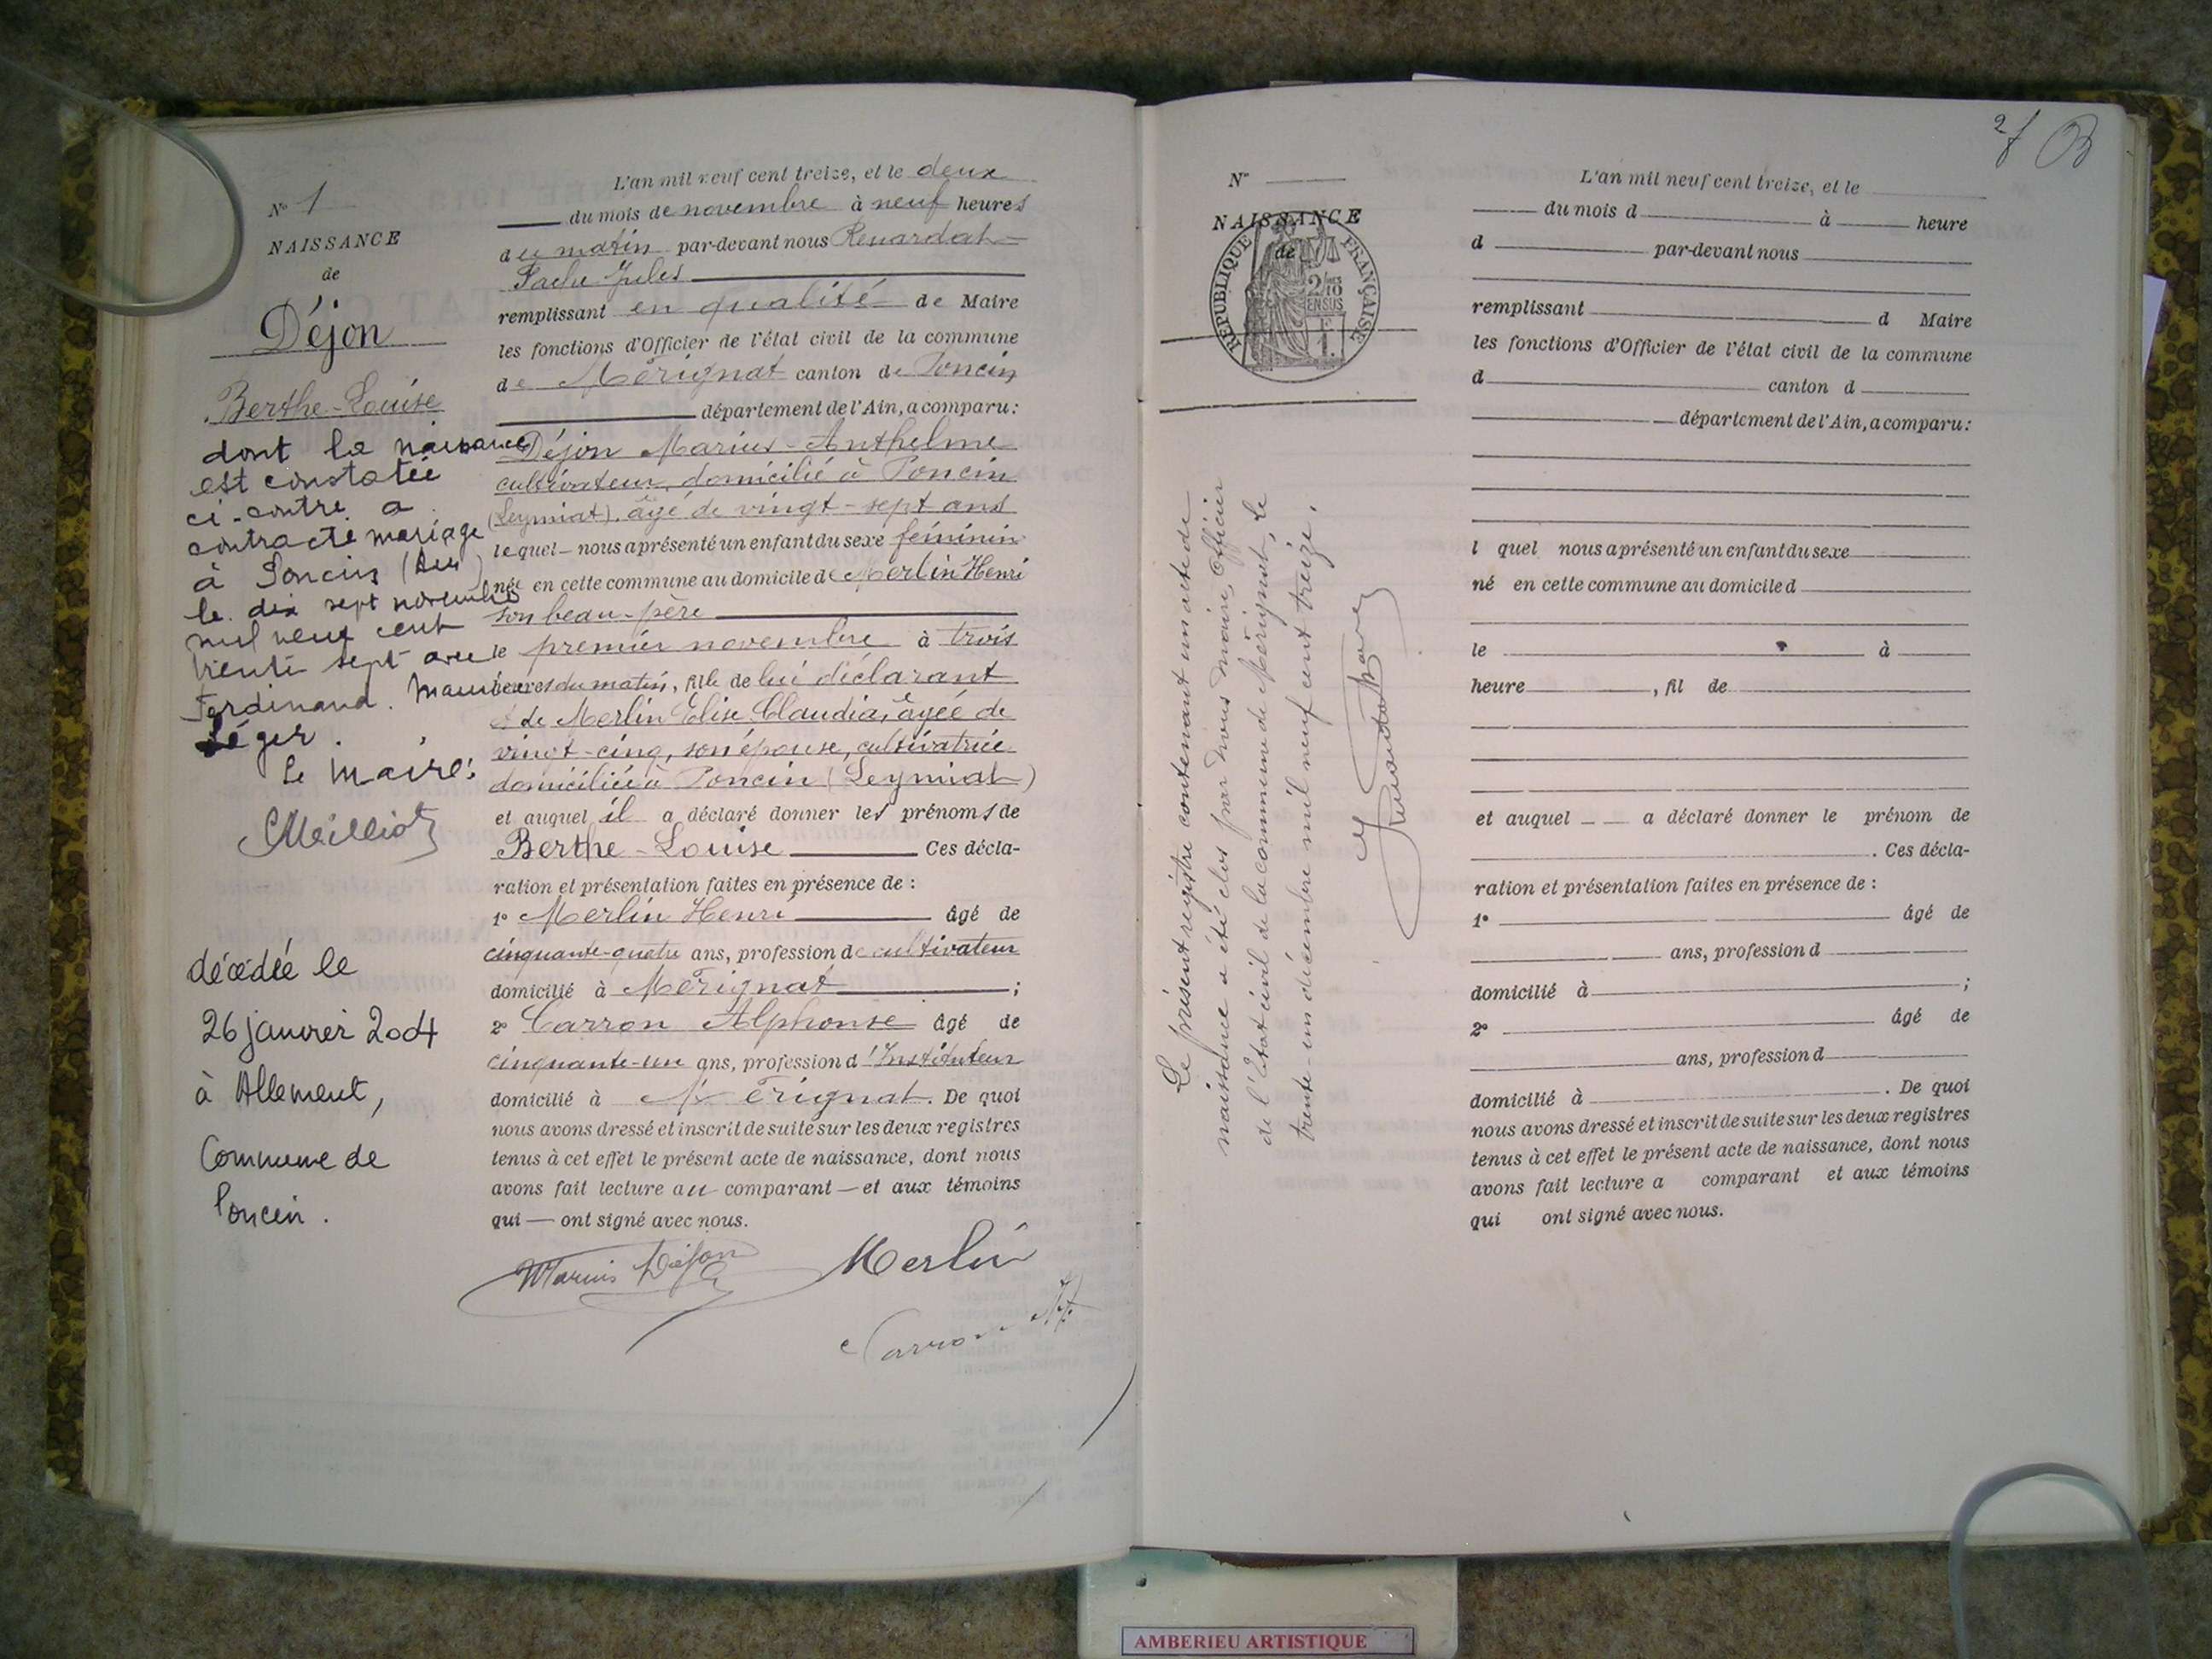 N° 1
NAISSANCE
de
Déjon
Berthe-Louise
dont la naissance
est constatée
ci-contre a
contracté mariage
à Poncin (Ain)
le dix sept novembre
mil neuf cent
trente sept avec
Ferdinand. Maurice
Léger.
Le Maire:
décédée le
26 janvier 2004
à Allement,
Commune de
Poncin.
L'an mil neuf cent treize, et le deux
du mois de novembre à neuf heures
du matin par-devant nous Renardat-
Fache Jules
remplissant en qualité de Maire
les fonctions d'Officier de l'état civil de la commune
de Mérignat canton de Poncin
département de l'Ain, a comparu:
Déjon Marius-Anthelme
cultivateur, domicilié à Poncin
(Leymiat), âgé de vingt-sept ans
lequel — nous a présenté un enfant du sexe féminin
née en cette commune au domicile de Merlin Henri
son beau-père
le premier novembre à trois
heures du matin, fille de lui déclarant
et de Merlin Élise Claudia, âgée de
vingt-cinq, son épouse, cultivatrice
domiciliée à Poncin (Leymiat)
et auquel il a déclaré donner les prénoms de
Berthe-Louise Ces décla-
ration et présentation faites en présence de :
1° Merlin Henri âgé de
cinquante-quatre ans, profession de cultivateur
domicilié à Mérignat ;
2° Carron Alphonse âgé de
cinquante-un ans, profession d'Instituteur
domicilié à Mérignat. De quoi
nous avons dressé et inscrit de suite sur les deux registres
tenus à cet effet le présent acte de naissance, dont nous
avons fait lecture au comparant — et aux témoins
qui — ont signé avec nous.
Marius Déjon Merlin
Carron
2
N°
NAISSANCE
de
REPUBLIQUE FRANÇAISE
2/10
EN SUS
Le présent registre contenant un acte de
naissance a été clos par nous maire, Officier
de l'Etat civil de la commune de Mérignat, le
trente-un décembre mil neuf cent treize.
L'an mil neuf cent treize, et le
du mois d à heure
d par-devant nous
remplissant d Maire
les fonctions d'Officier de l'état civil de la commune
d canton d
département de l'Ain, a comparu:
l quel nous a présenté un enfant du sexe
né en cette commune au domicile d
le à
heure , fil de
et auquel a déclaré donner le prénom de
. Ces décla-
ration et présentation faites en présence de :
1° âgé de
ans, profession d
domicilié à ;
2° âgé de
ans, profession d
domicilié à . De quoi
nous avons dressé et inscrit de suite sur les deux registres
tenus à cet effet le présent acte de naissance, dont nous
avons fait lecture a comparant et aux témoins
qui ont signé avec nous.
AMBERIEU ARTISTIQUE